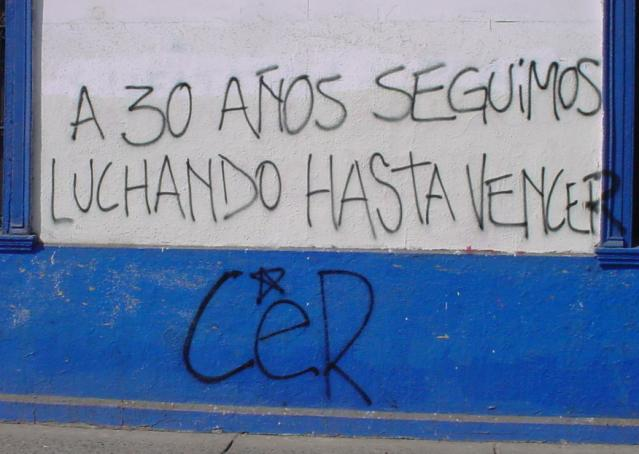 A 30 AÑOS SEGUiMOS
LUCHANDO HASTA VENCER
CeR